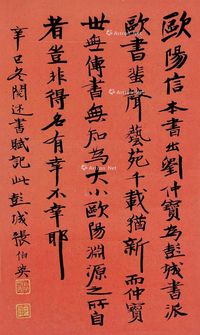 歐陽信本書出劉仲寶為彭城書派
歐書蜚聲藝苑千載猶新而仲寶
世無傳書無知為大小歐陽淵源之所自
者豈非得名有幸不幸耶
辛巳冬閱近書賦記此彭城張伯英